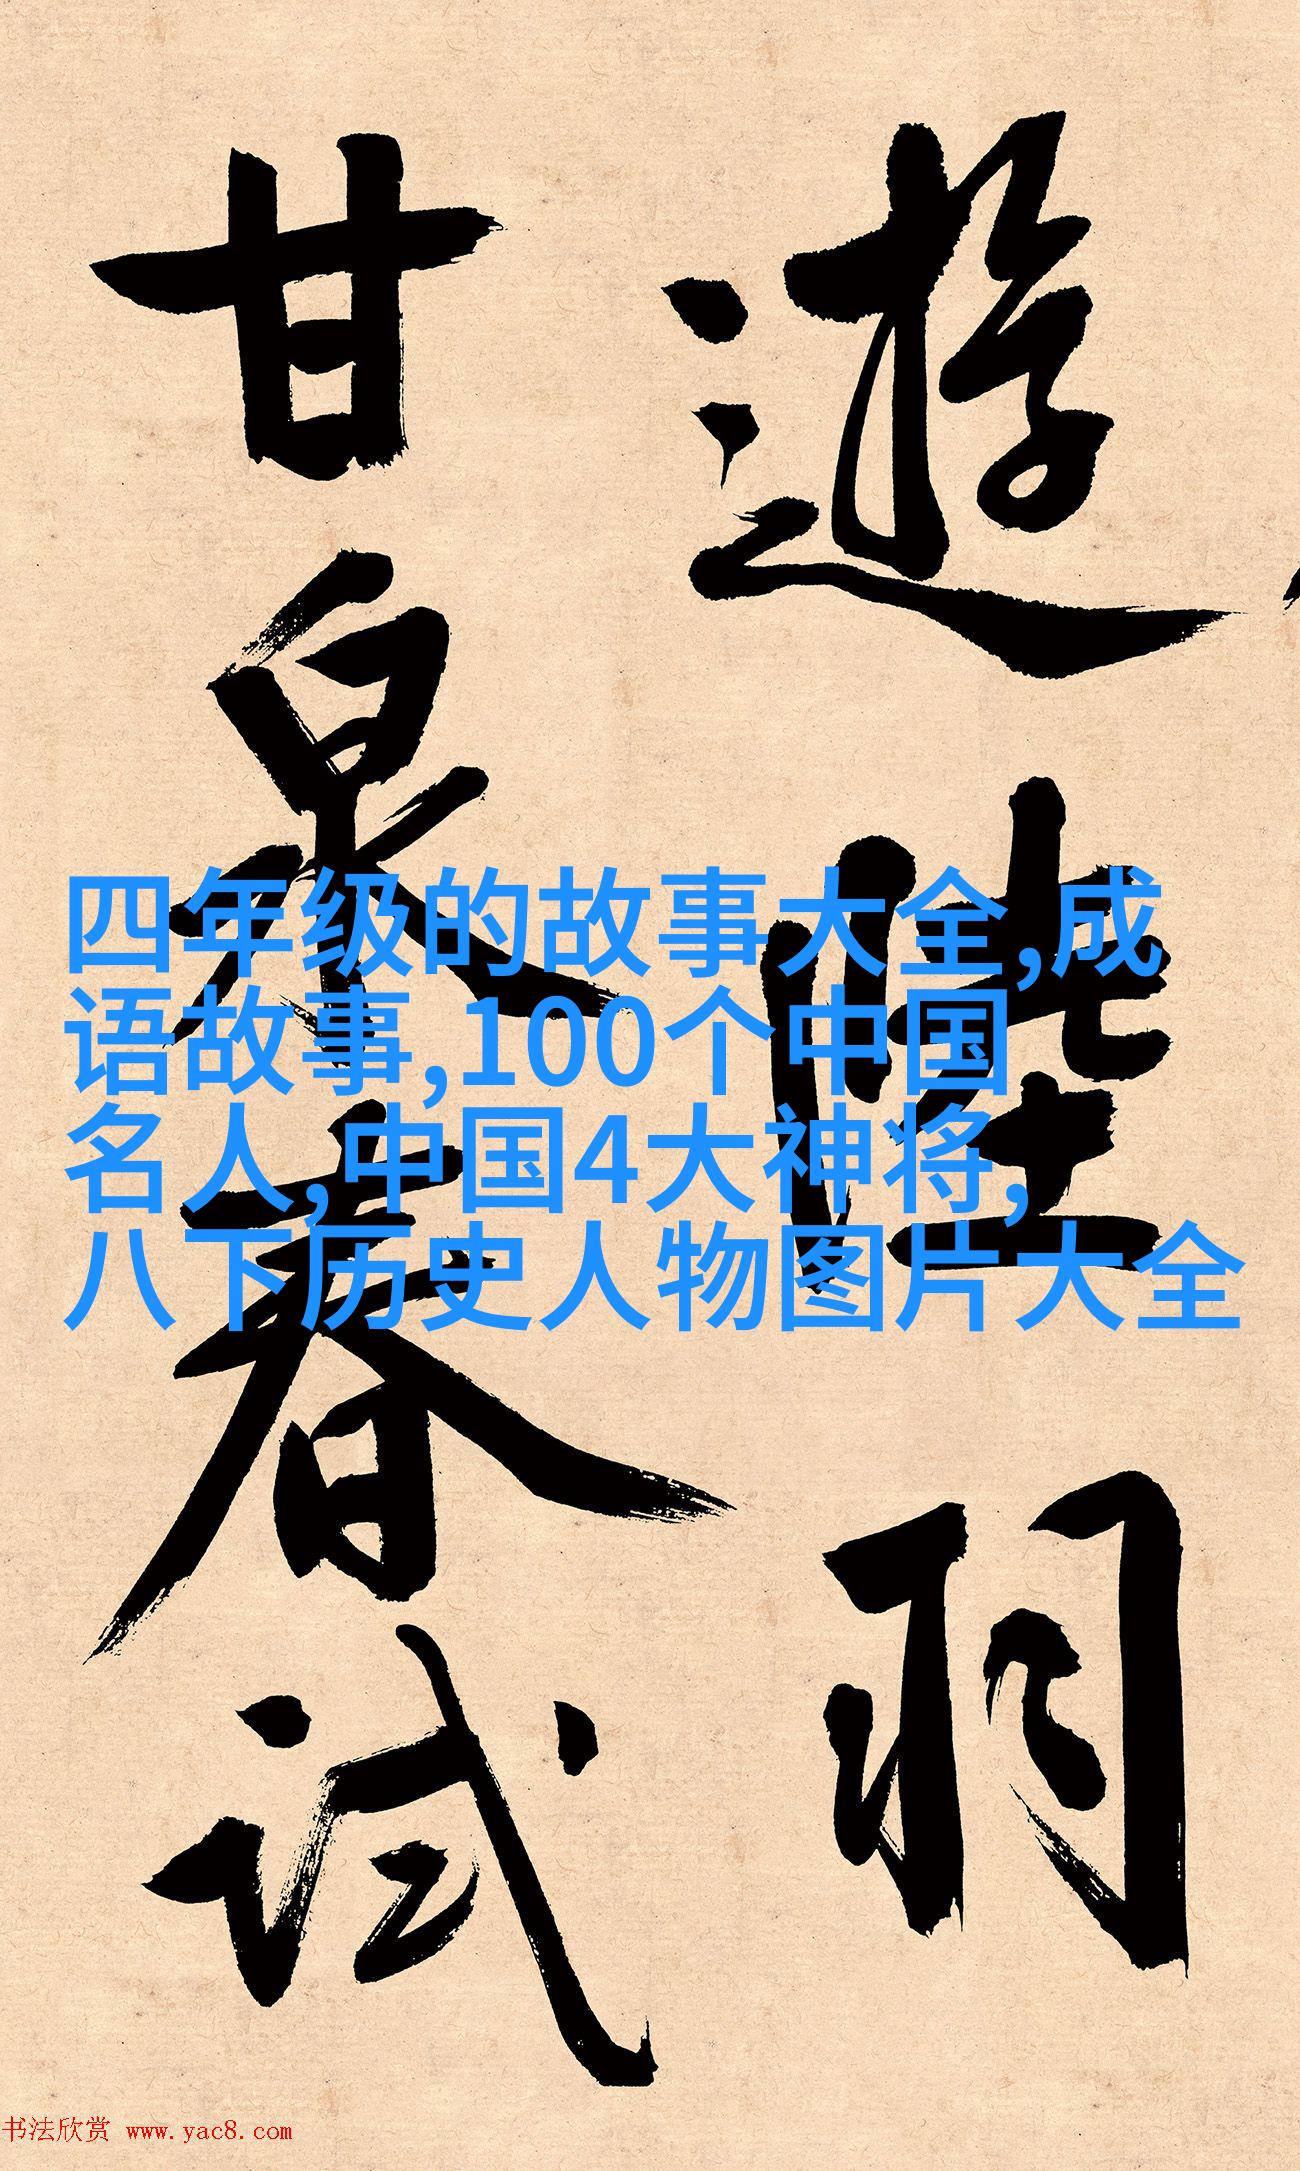 遊陸羽
甘泉春试
四年级的故事大全,成
语故事,100个中国
名人,中国4大神将,
八下历史人物图片大全
书法欣赏 www.yac8.com